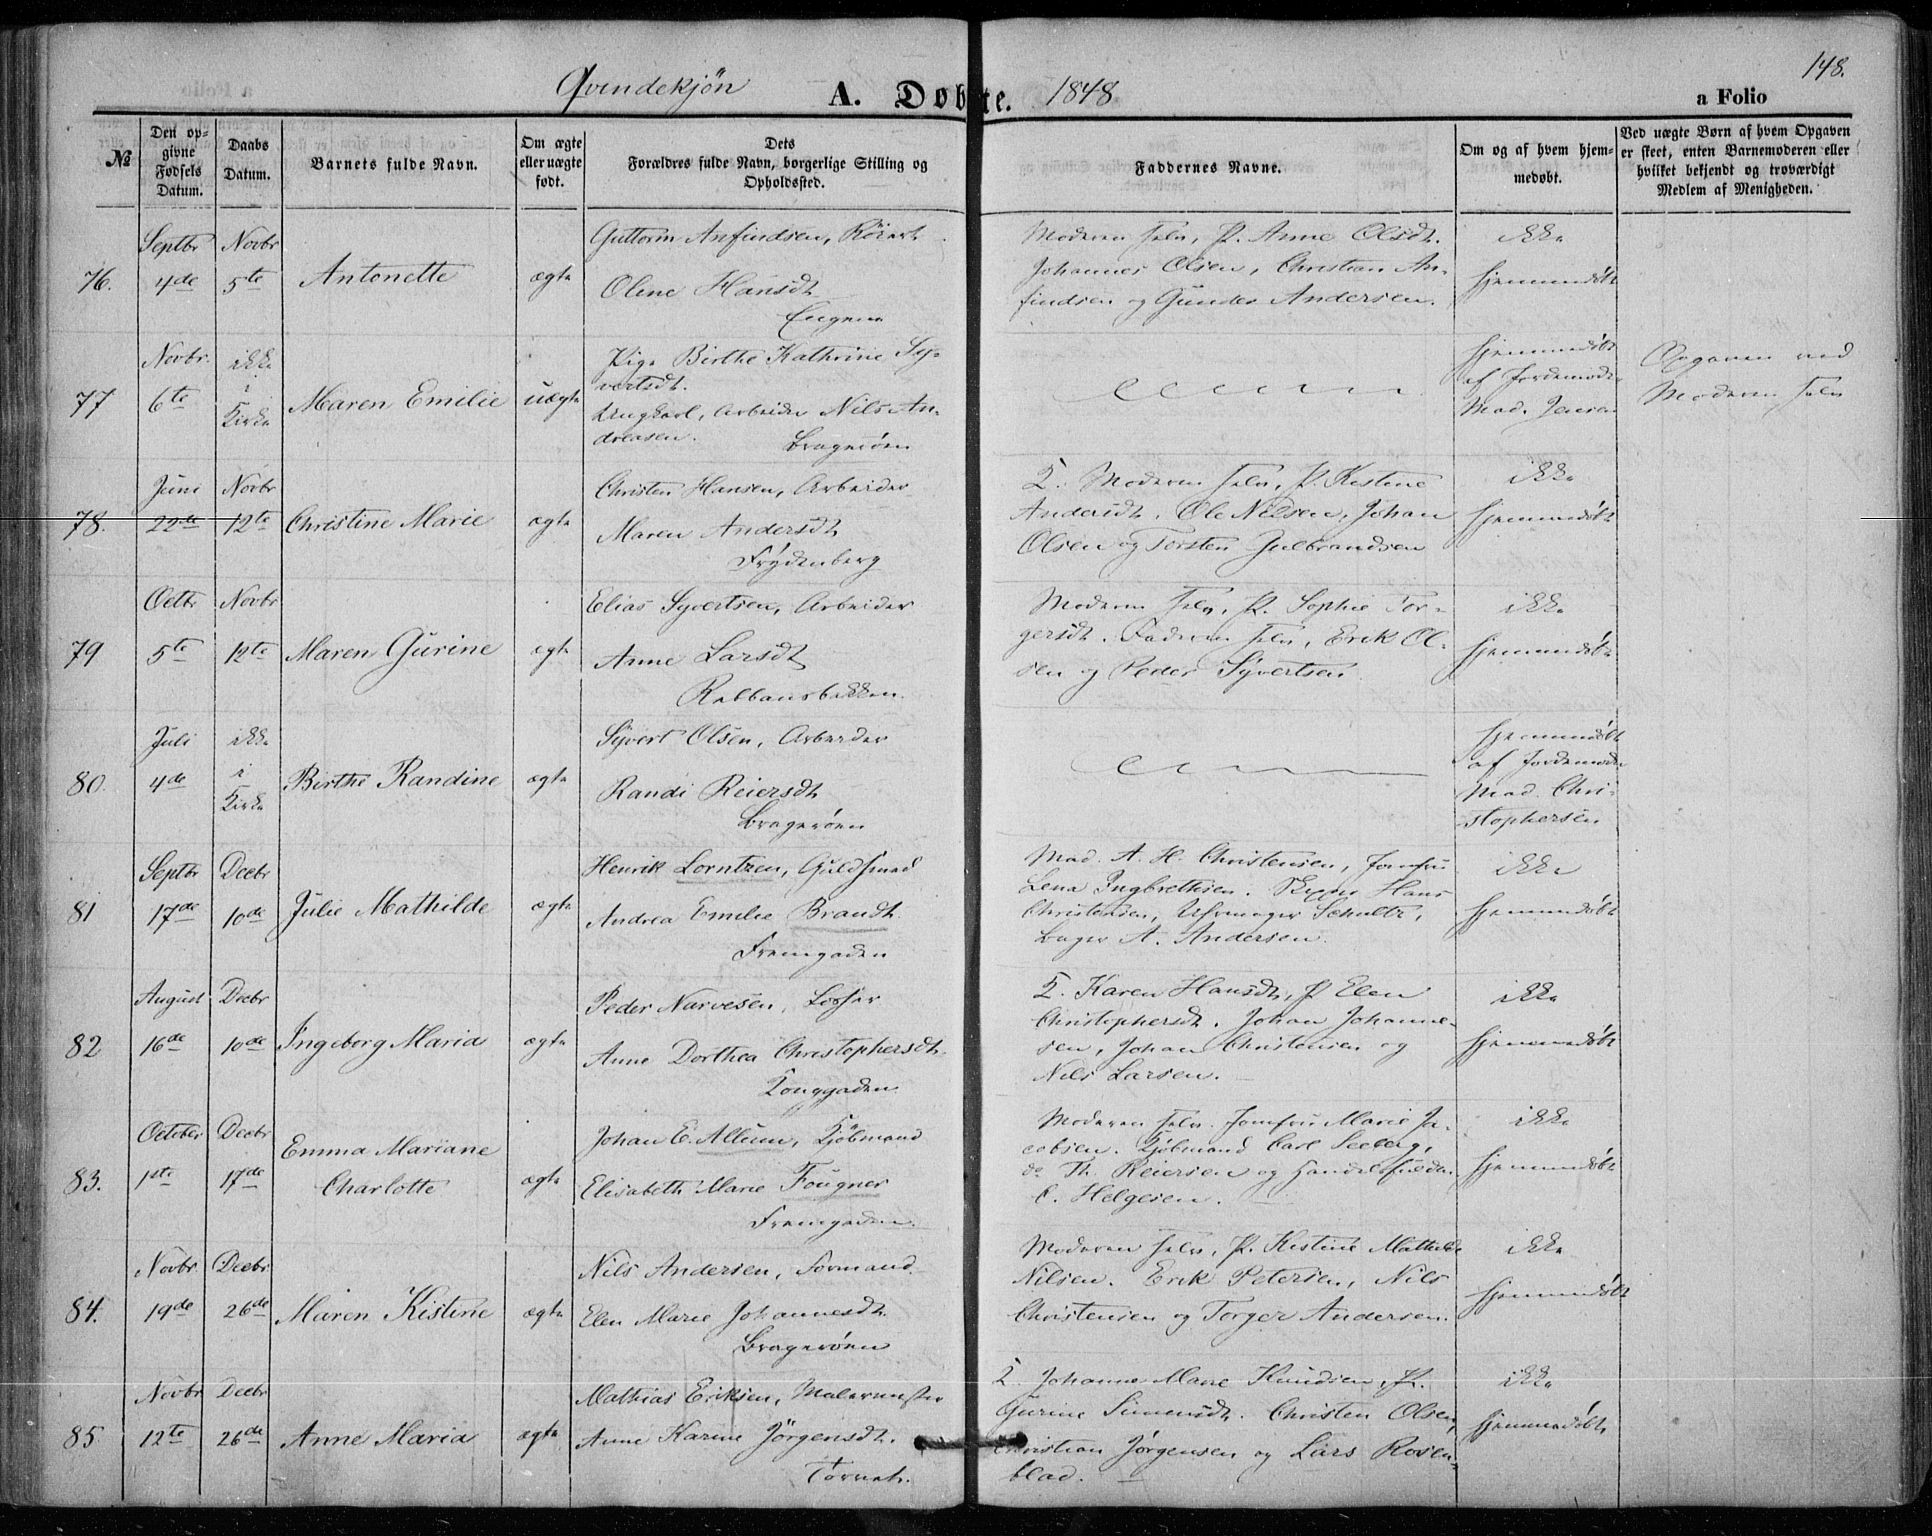 148.
Qvindekjøn A. Døbte. 1848 a Folio
№
Den op=
givne
Fødsels
Datum.
Daabs
Datum.
Barnets fulde Navn.
Om ægte
eller uægte
født.
Dets
Forældres fulde Navn, borgerlige Stilling og
Opholdssted.
Faddernes Navne.
Om og af hvem hjem-
medøbt.
Ved uægte Børn af hvem Opgaven
er skeet, enten Barnemoderen eller
hvilket bekjendt og troværdigt
Medlem af Menigheden.
76.
Septbr
4de
Novbr
5te
Antonette
ægte
Guttorm Anfindsen,
Olene Hansdt
Engene
Moderen selv, P. Anne Olsdt.
Johannes Olsen, Christian An-
findsen og Gunder Andersen.
ikke
hjemmedøbt
77
Novbr.
6te
ikke
i
Kirke
Maren Emilie
uægte
Pige Birthe Kathrine Sy-
vertsdt.
Ungkarl, Arbeider Nils An-
dreasen.
Bragerøen
hjemmedøbt
af Jordemoder
Mad. Jensen
Opgaven ved
Moderen selv
78.
Juni
22de
Novbr
12te
Christine Marie
ægte
Christen Hansen, Arbeider
Maren Andersdt
Frydenberg
K. Moderen selv, P. Kistine
Andersdt. Ole Nilsen, Johan
Olsen og Torsten Gulbrandsen
ikke
hjemmedøbt
79
Octbr
5te
Novbr
12te
Maren Gurine
ægte
Elias Syvertsen, Arbeider
Anne Larsdt
Rabbansbakken.
Moderen selv, P. Sophie Tor-
gersdt. Faderen selv, Erik Ol-
sen og Peder Syvertsen
ikke
hjemmedøbt
80
Juli
4de
ikke
i
Kirke
Birthe Randine
ægte
Syvert Olsen, Arbeider
Randi Reiersdt
Bragerøen
hjemmedøbt
af Jordemoder
Mad. Chri-
stophersen
81
Septbr
17de
Decbr
10de
Julie Mathilde
ægte
Henrik Lorntzen, Guldsmed
Andrea Emilie Brandt.
Fremgaden
Mad. A. H. Christensen, Jomfru
Lena Ingbrethsen. Hans
Christensen, Uhrmager Schultz,
Bager A. Andersen.
ikke
hjemmedøbt
82
August
16de
Decbr
10de
Ingeborg Maria
ægte
Peder Narvesen, Losser
Anne Dorthea Christophersdt.
Konggaden
K. Karen Hansdt, P Elen
Christophersdt. Johan Johanne-
sen, Johan Christensen og
Nils Larsen.
ikke
hjemmedøbt
83.
October
1ste
Decbr
17de
Emma Mariane
Charlotte
ægte
Johan E. Allum, Kjøbmand
Elisabeth Marie Fougner
Fremgaden.
Moderen selv. Jomfru Marie Ja-
cobsen. Kjøbmand Carl Seeberg,
do Th. Reiersen og Handelsfuldm.
C. Helgesen.
ikke
hjemmedøbt
84.
Novbr.
19de
Decbr
26de
Maren Kistine
ægte
Nils Andersen, Formand.
Elen Marie Johannesdt.
Bragerøen
Moderen selv, P. Kistine Mathilde
Nilsen. Erik Petersen, Nils
Christensen og Torger Andersen.
ikke
hjemmedøbt
85
Novbr
12te
Decbr
26de
Anne Maria
ægte
Mathias Eriksen, Malermester
Anne Karine Jörgensdt.
Torvet.
K. Johanne Marie Knudsen, P.
Gurine Simensdt. Christen Olsen,
Christian Jørgensen og Lars Rosen-
blad.
ikke
hjemmedøbt